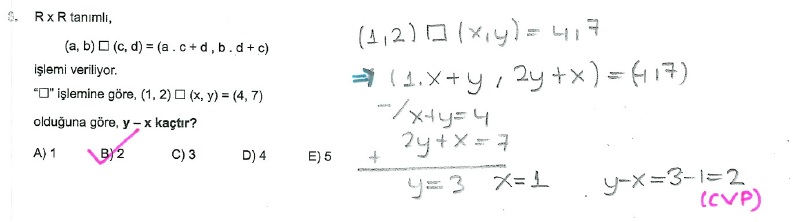 6. R x R tanımlı,
(a, b) □ (c, d) = (a . c + d , b . d + c)
işlemi veriliyor.
"□" işlemine göre, (1, 2) □ (x, y) = (4, 7)
olduğuna göre, y – x kaçtır?
A) 1 B) 2 C) 3 D) 4 E) 5
(1,2) □ (x,y) = 4,7
⇒ (1.x+y , 2y+x) = (4,7)
-/x+y=4
+ 2y+x=7
y=3 x=1 y-x=3-1=2
(CVP)